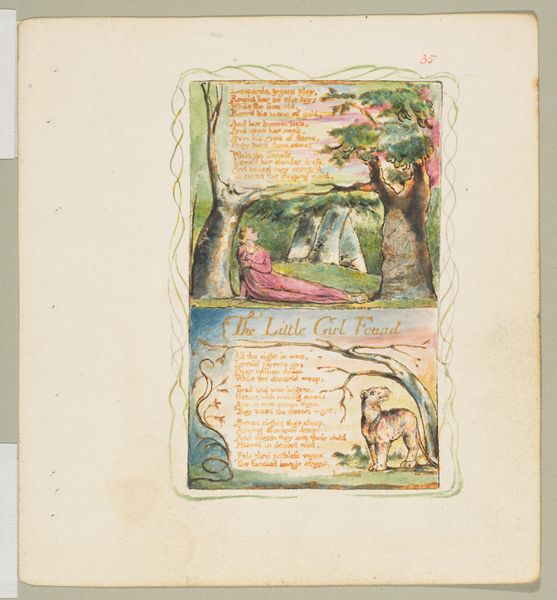 35
Leopards, tygers play,
Round her as she lay;
While the lion old,
Bow'd his mane of gold,
And her bosom lick,
And upon her neck,
From his eyes of flame,
Ruby tears there came;
While the lioness,
Loos'd her slender dress,
And naked they convey'd
To caves the sleeping maid.
The Little Girl Found
All the night in woe,
Lyca's parents go:
Over vallies deep,
While the desarts weep.
Tired and woe-begone,
Hoarse with making moan:
Arm in arm seven days,
They trac'd the desart ways.
Seven nights they sleep,
Among shadows deep:
And dream they see their child
Starv'd in desart wild.
Pale thro' pathless ways
The fancied image strays,